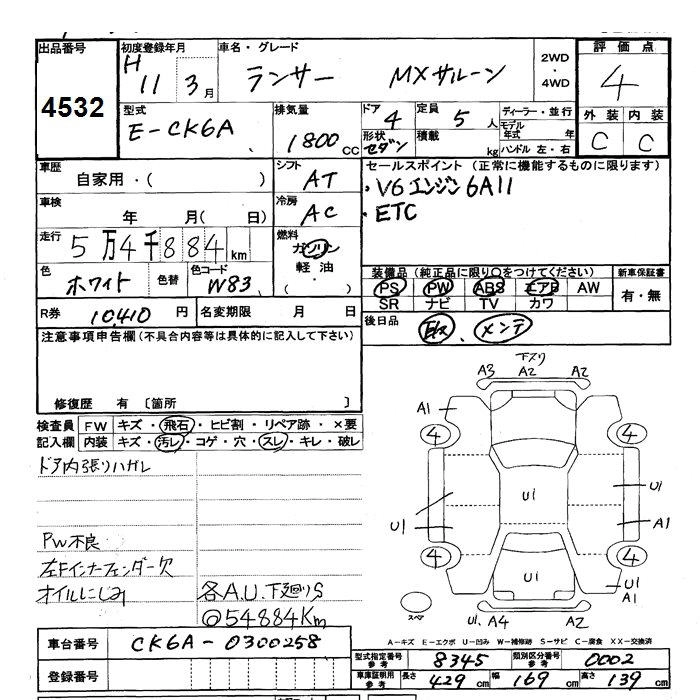 出品番号
4532
初度登録年月
H 11 3月
車名・グレード
ランサー MXサルーン
2WD
・
4WD
評価点
4
外装 内装
C C
型式
E-CK6A
排気量
1800cc
ドア 4
形状 セダン
定員 5人
積載 kg
ディーラー・並行
モデル年式 年
ハンドル 左・右
車歴
自家用・( )
シフト
AT
車検
年 月( 日)
冷房
AC
走行
5万4千884km
燃料
ガソリン
軽油
・( )
色
ホワイト
色替
色コード
W83
R券 10,410円
名変期限 月 日
セールスポイント (正常に機能するものに限ります)
・V6エンジン6A11
・ETC
装備品 (純正品に限り○をつけてください)
PS PW ABS エアB AW
SR ナビ TV カワ
新車保証書
有・無
後日品
メンテ
注意事項申告欄(不具合内容等は具体的に記入して下さい)
修復歴 有 〔箇所 〕
検査員記入欄
FW キズ・飛石・ヒビ割・リペア跡・×要
内装 キズ・汚レ・コゲ・穴・スレ・キレ・破レ
ドア内張りハガレ
PW不良
左Fインナーフェンダー欠
オイルにじみ
各A.U.下廻りS
@54884Km
下スリ
A3 A2 A2
A1
4 4
U1
U1
U1 A1
4 4
U1
U1
A1
スペア
U1. A4 A2
A-キズ E-エクボ U-凹み W-補修跡 S-サビ C-腐食 XX-交換済
車台番号 CK6A-0300258
登録番号
型式指定番号 参考 8345
類別区分番号 参考 0002
車庫証明用 参考 長さ 429cm 幅 169cm 高さ 139cm